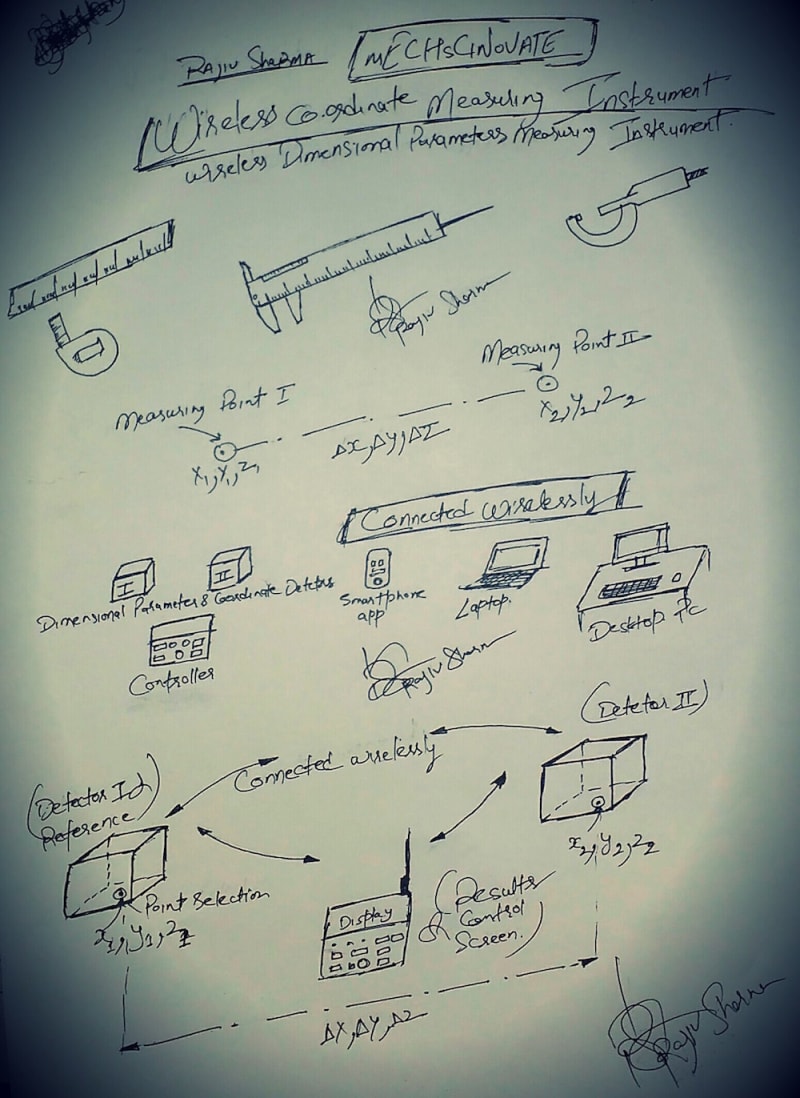 RAJIV SHARMA
MECHSCINOVATE
Wireless Co.ordinate Measuring Instrument
wireless Dimensional Parameters Measuring Instrument.
Rajiv Sharma
Measuring Point I
Measuring Point II
X1, Y1, Z1
ΔX, ΔY, ΔZ
X2, Y2, Z2
Connected wirelessly
I
II
Dimensional Parameter & Coordinate Detetors
Smartphone
app
Laptop.
Desktop Pc
Controller
Rajiv Sharma
(Detetor II)
Connected wirelessly
(Detector I &
Reference)
X2, Y2, Z2
Point Selection
X1, Y1, Z1
Display
(Results
& Control
Screen.)
ΔX, ΔY, ΔZ
Rajiv Sharma